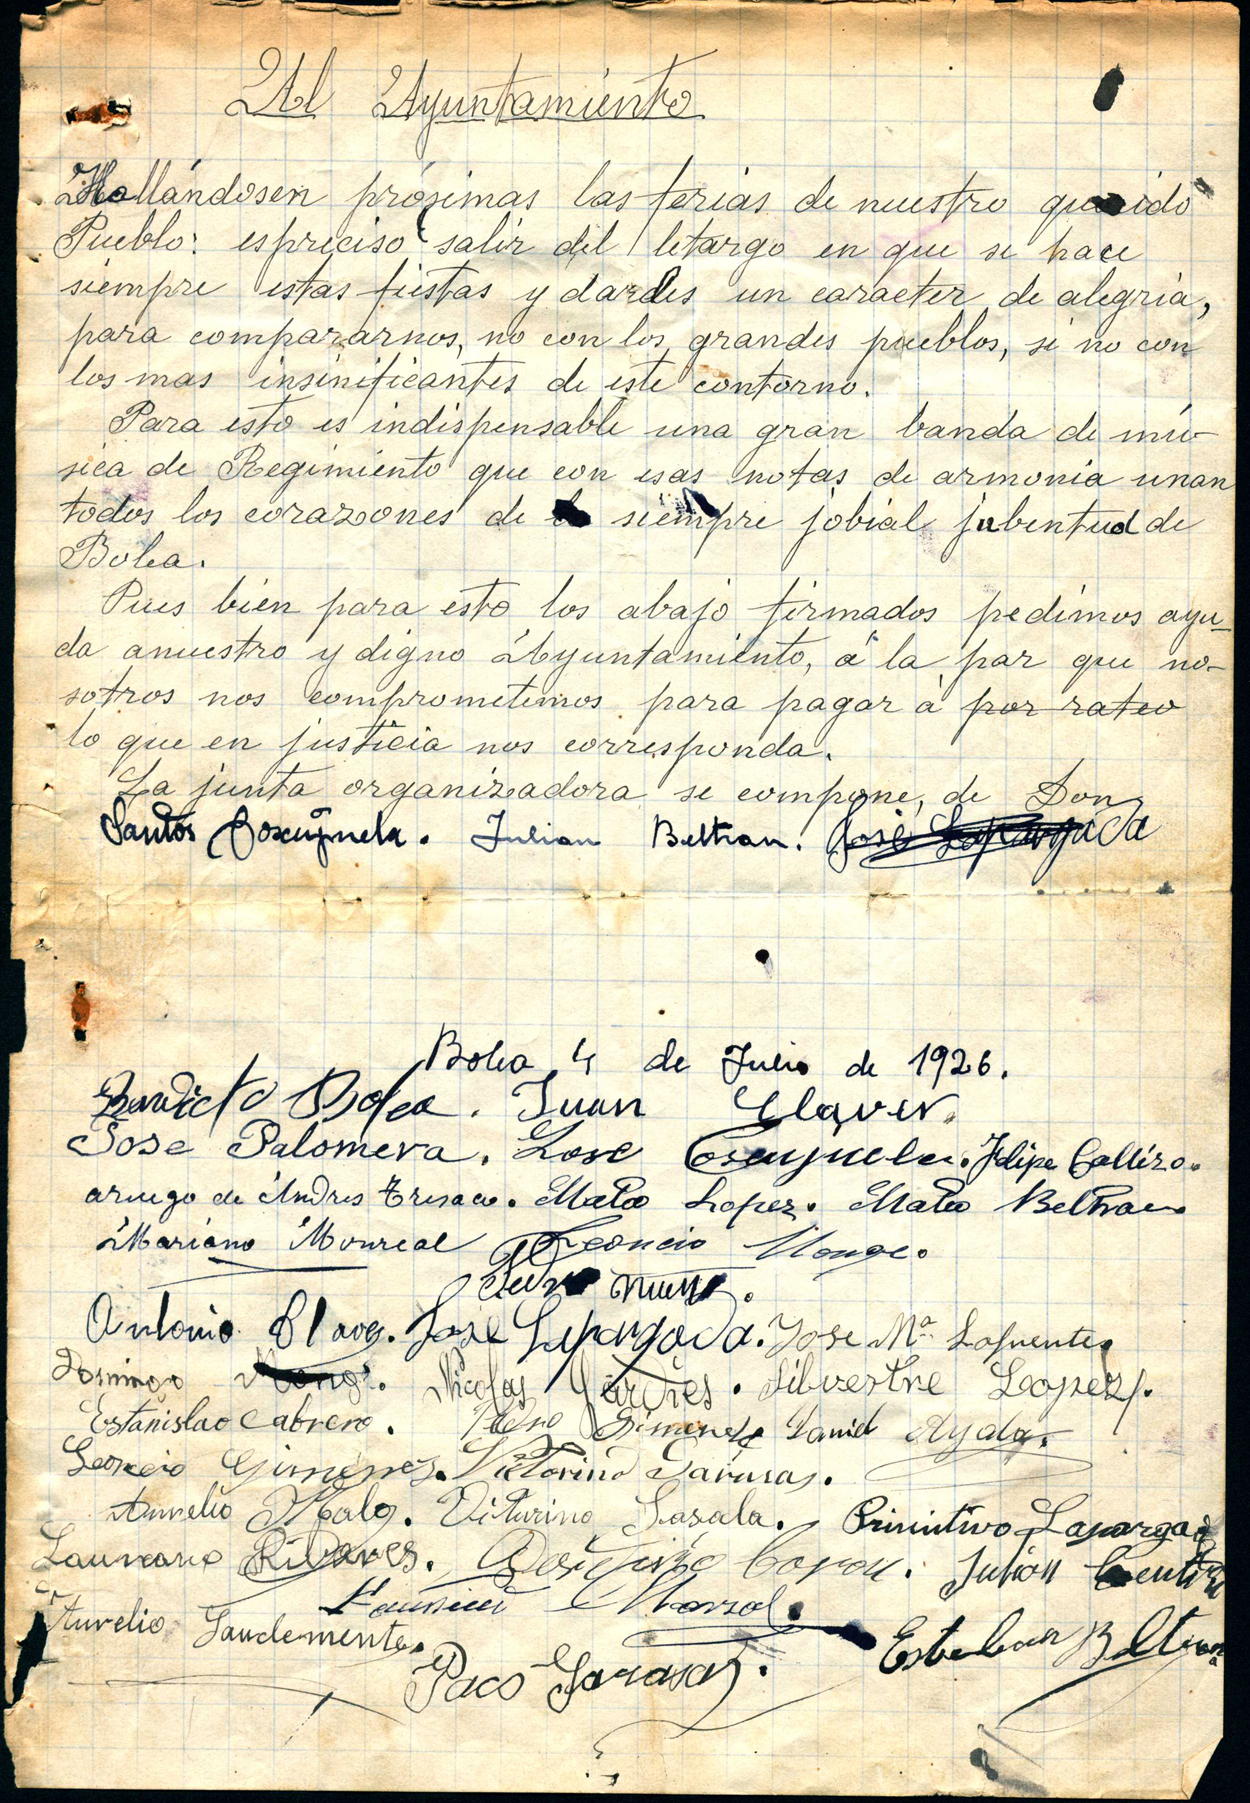 Al Ayuntamiento
Hallándosen prósimas las ferias de nuestro querido
Pueblo: espreciso salir del letargo en que se hace
siempre estas fiestas y darles un caracter de alegria,
para compararnos, no con los grandes pueblos, si no con
los mas insinificantes de este contorno.
Para esto es indispensable una gran banda de mú-
sica de Regimiento que con esas notas de armonia unan
todos los corazones de siempre jobial jubentud de
Bolea.
Pues bien para esto los abajo firmados pedimos ayu-
da anuestro y digno Ayuntamiento, á la par que no-
sotros nos comprometemos para pagar á por rateo
lo que en justicia nos corresponda.
La junta organizadora se compone, de Don
Santos Boscujuela. Julian Beltran. José Lapargada
Bolea 4 de Julio de 1926.
Benedicto Bolea. Juan Claver.
Jose Palomera. Jose Felipe Callizo.
aruego de Andres Eresaco. Mateo Lopez. Mateo Beltran
Mariano Monreal Leoncio Monge.
Antonio Claver. José Lapargada. Jose Mª Lafuente.
Domingo Monge. Nicolas. Silvestre Lopez.
Estanislao Cabrero. Pedro Gimenez David Ayala.
Leoncio Gimenez. Victorino Garasas.
Aurelio Malo. Viturino Lasala. Primitivo Lapargada
Laureano. Julian
Marzol.
Aurelio Sandemente. Esteban Beltran
Paco Garasas.